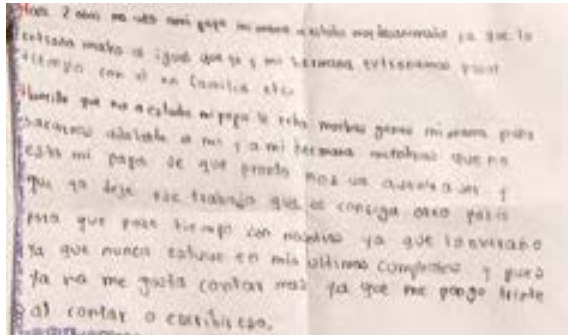 Hace 2 años no veo a mi papa mi mama a estado muy desanimada ya que lo
extraña mucho al igual que yo y mi hermana extrañamos pasar
tiempo con el en familia etc
que no a estado mi papa le echa muchas ganas mi mama para
sacarnos adelante a mi y a mi hermana mientras que no
esta mi papa de que pronto nos va a ver y
que ya deje ese trabajo que se consiga otro para
para que pase tiempo con nosotros ya que lo extraño
ya que nunca estuvo en mis ultimos cumpleaños y pues
ya no me gusta contar mas ya que me pongo triste
al contar o escribir eso.